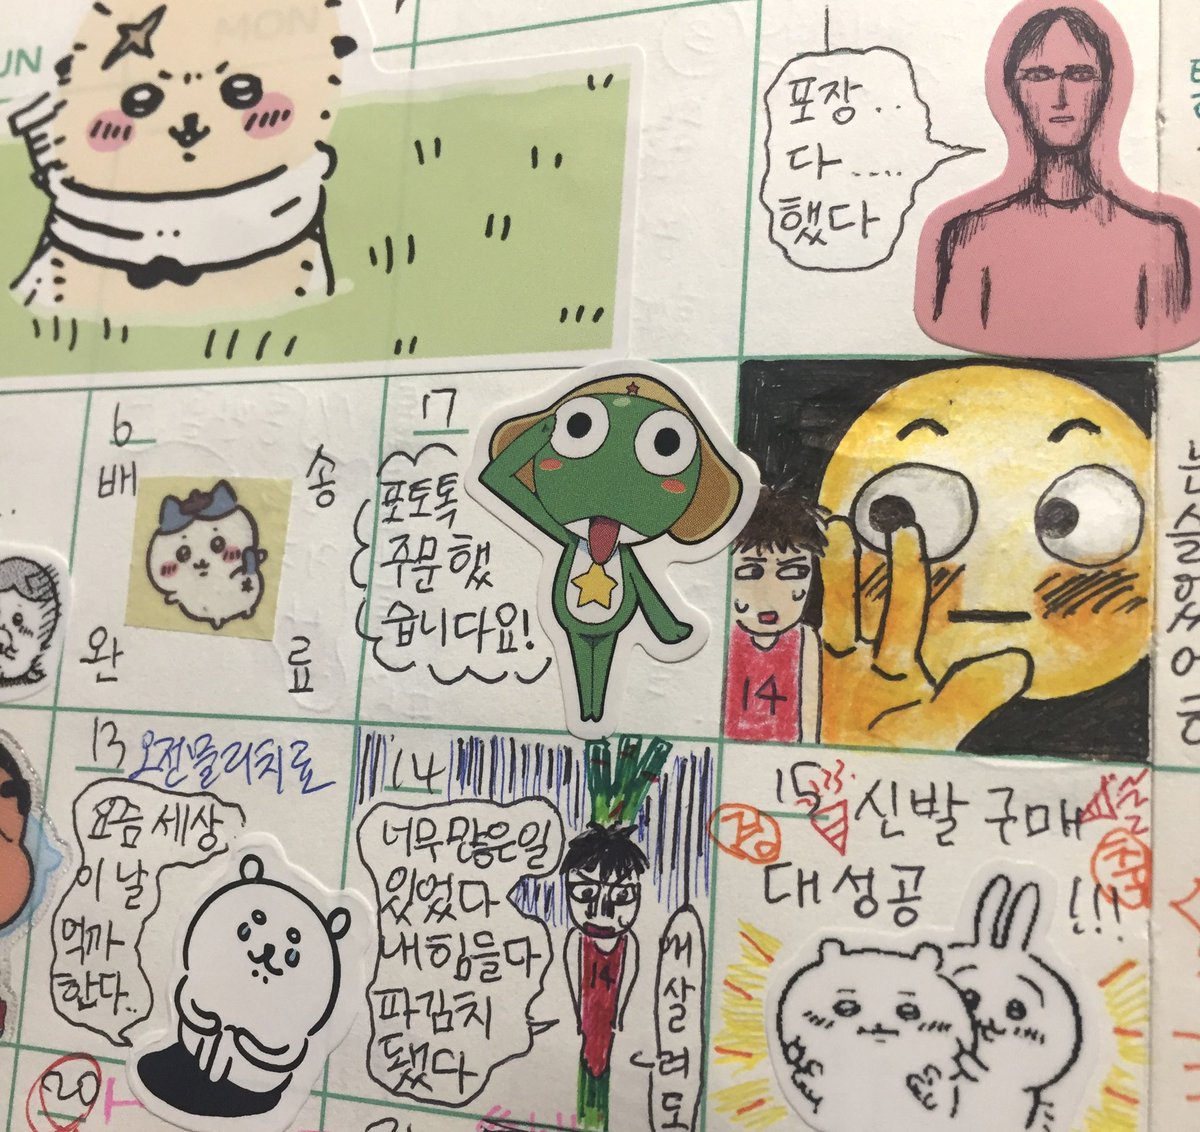 포장..
다.....
했다
6
배 송
완 료
7
포토톡
주문했
습니다요!
14
13 오전물리치료
요즘 세상
이 날
억까
한다..
14
너무 많은 일
있었다
내 힘들다
파김치
됐다
14
15 신발 구매
경 축
대성공!!!
20